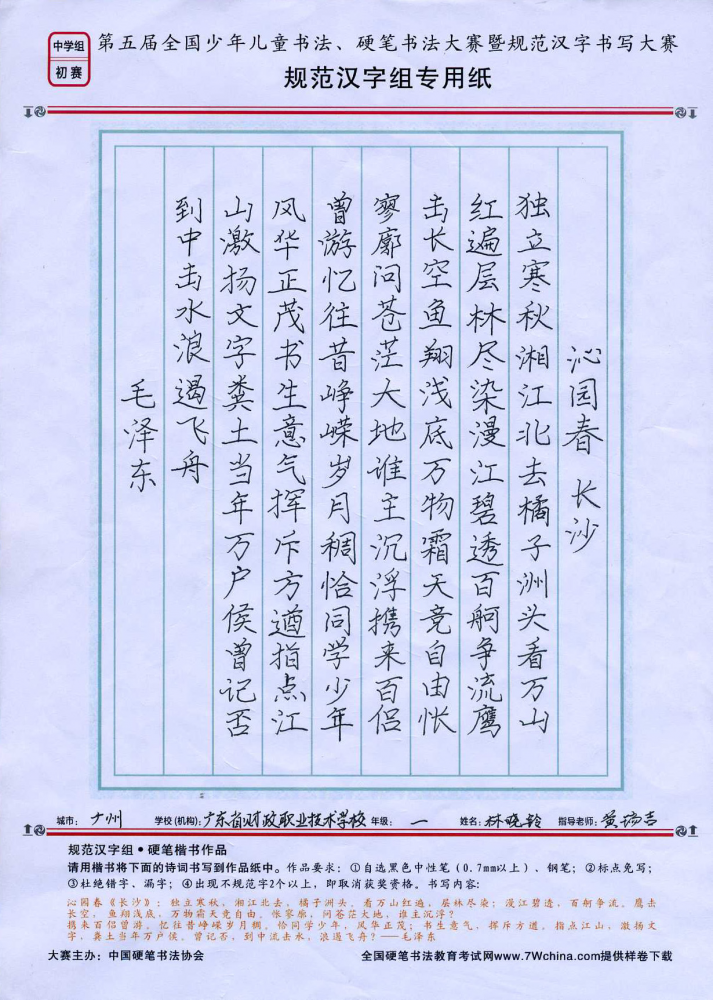 中学组
初赛
第五届全国少年儿童书法、硬笔书法大赛暨规范汉字书写大赛
规范汉字组专用纸
沁园春 长沙
独立寒秋湘江北去橘子洲头看万山
红遍层林尽染漫江碧透百舸争流鹰
击长空鱼翔浅底万物霜天竞自由怅
寥廓问苍茫大地谁主沉浮携来百侣
曾游忆往昔峥嵘岁月稠恰同学少年
风华正茂书生意气挥斥方遒指点江
山激扬文字粪土当年万户侯曾记否
到中击水浪遏飞舟
毛泽东
城市：广州 学校(机构)：广东省财政职业技术学校 年级：一 姓名：林晓铃 指导老师：黄扬吉
规范汉字组●硬笔楷书作品
请用楷书将下面的诗词书写到作品纸中。作品要求：①自选黑色中性笔（0.7mm以上）、钢笔；②标点免写；
③杜绝错字、漏字；④出现不规范字2个以上，即取消获奖资格。书写内容：
沁园春《长沙》：独立寒秋，湘江北去，橘子洲头。看万山红遍，层林尽染；漫江碧透，百舸争流。鹰击
长空，鱼翔浅底，万物霜天竞自由。怅寥廓，问苍茫大地，谁主沉浮？
携来百侣曾游，忆往昔峥嵘岁月稠。恰同学少年，风华正茂；书生意气，挥斥方遒。指点江山，激扬文
字，粪土当年万户侯。曾记否，到中流击水，浪遏飞舟？——毛泽东
大赛主办：中国硬笔书法协会 全国硬笔书法教育考试网www.7Wchina.com提供样卷下载